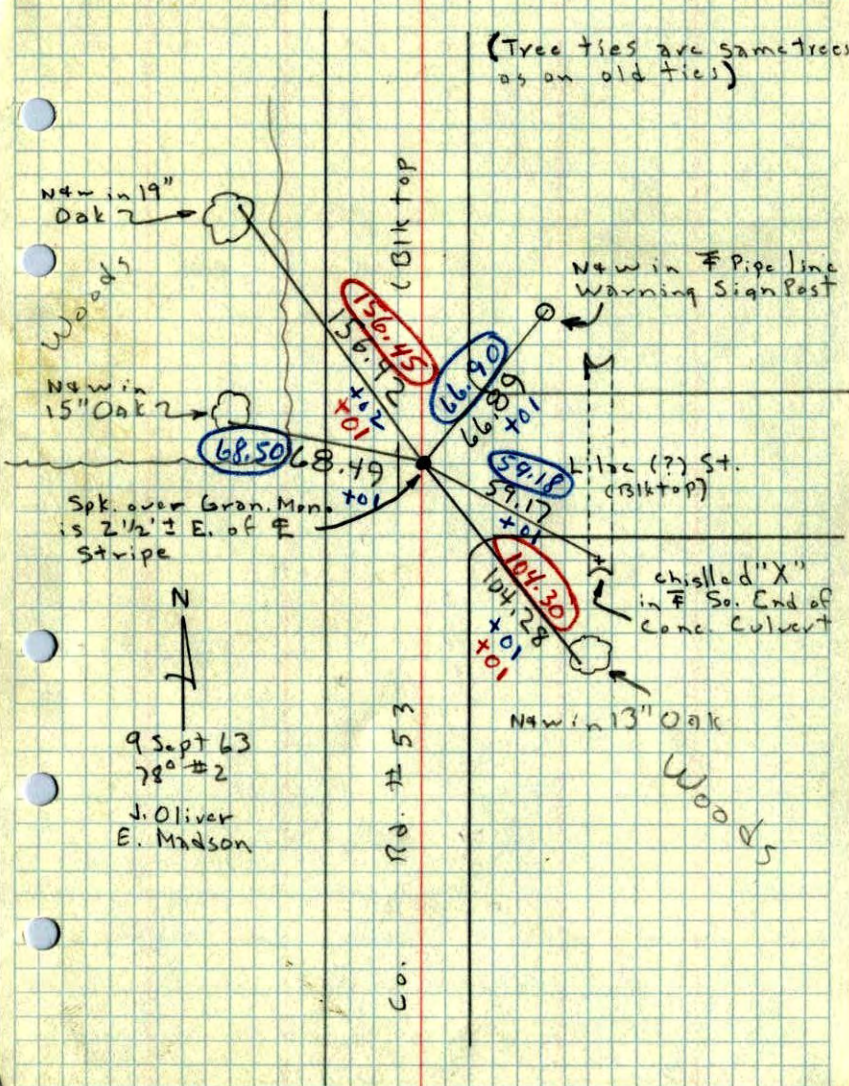 (Tree ties are same trees
as on old ties)
(Blktop
N&W in 19"
Oak
Woods
N&W in ℄ Pipe line
Warning Sign Post
156.45
156.42
+02
+01
66.90
66.89
+01
N&W in
15" Oak
68.50
68.49
+01
59.18
59.17
+01
Lilac (?) St.
(Blktop)
Spk. over Gran. Mon.
is 2 1/2' ± E. of ℄
Stripe
104.30
104.28
+01
+01
chislled "X"
in ℄ So. End of
Conc. Culvert
N
N&W in 13" Oak
Woods
9 Sept 63
78° #2
J. Oliver
E. Madson
Co. Rd. #53